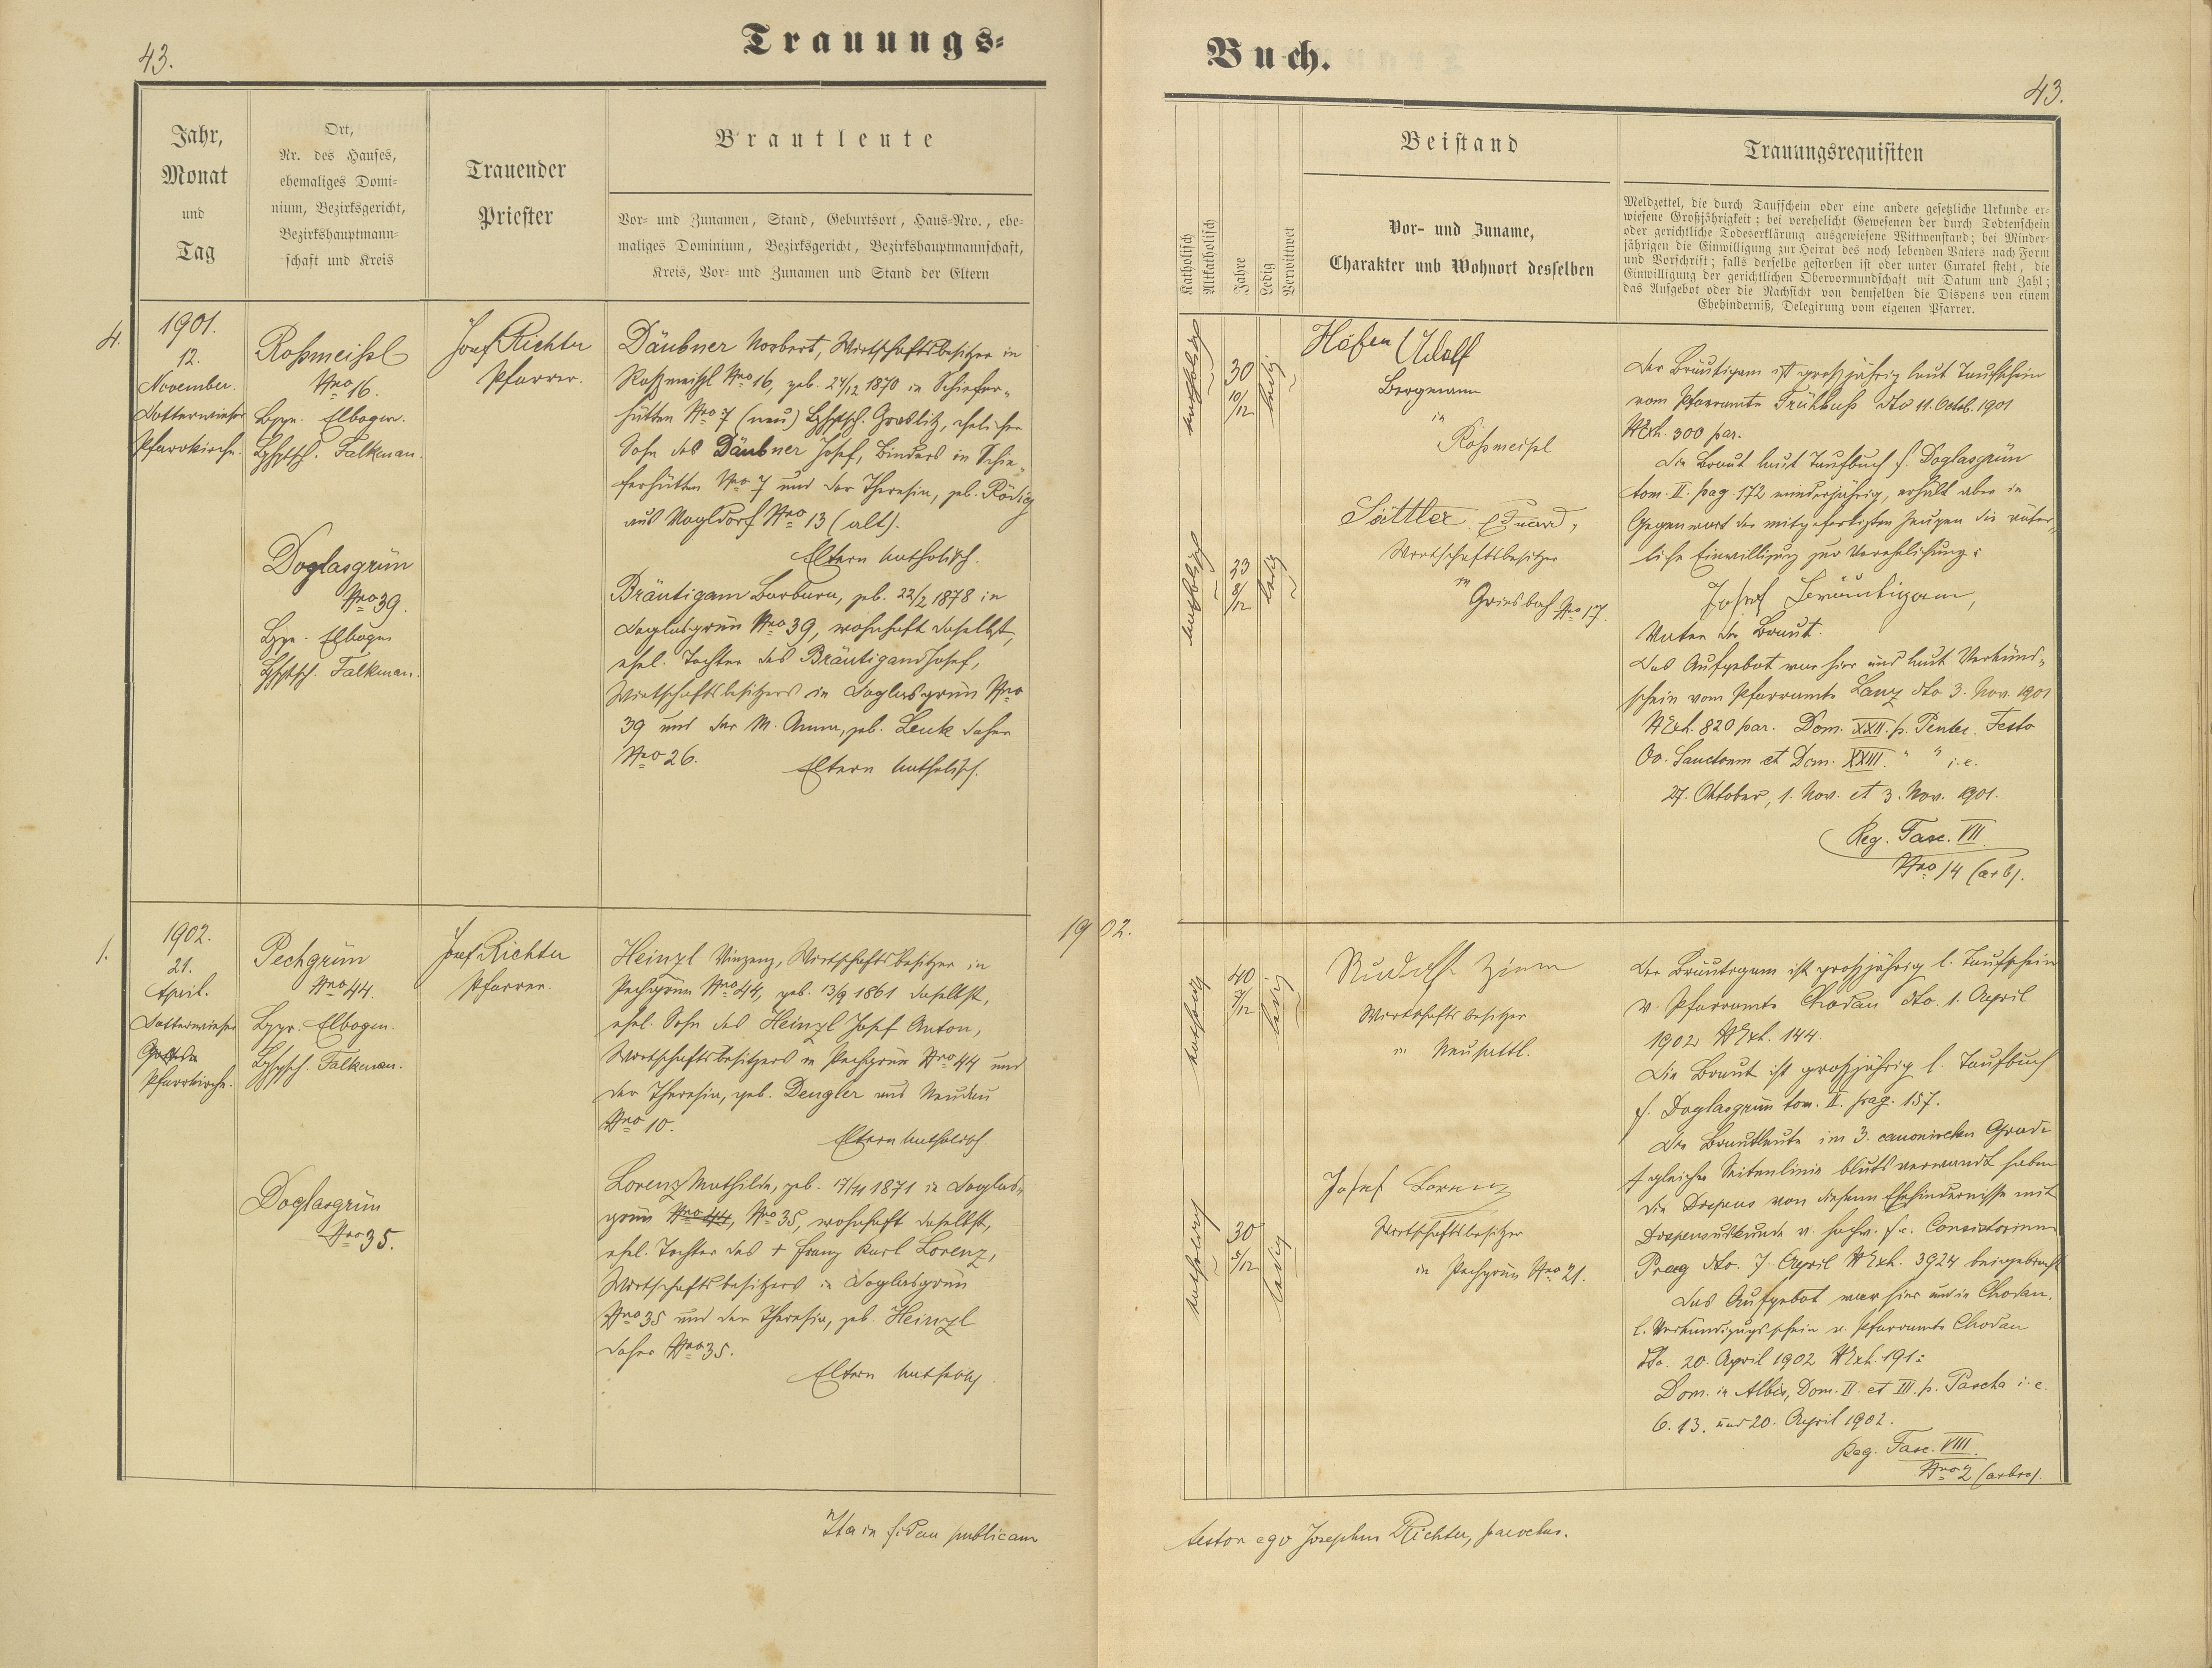 43.
Trauungs-
Jahr,
Monat
und
Tag
Ort,
Nr. des Hauses,
ehemaliges Domi-
nium, Bezirksgericht,
Bezirkshauptmann-
schaft und Kreis
Trauender
Priester
Brautleute
Vor- und Zunamen, Stand, Geburtsort, Haus-Nro., ehe-
maliges Dominium, Bezirksgericht, Bezirkshauptmannschaft,
Kreis, Vor- und Zunamen und Stand der Eltern
4.
1901.
12.
November.
Dotterwieser
Pfarrkirche.
Roßmeißl
Nro 16.
Elbogen.
Falkenau.
Doglasgrün
Nro 39.
Elbogen
Falkenau.
Josef Richter
Pfarrer.
Däubner Norbert, Wirtschaftsbesitzer in
Roßmeißl Nro 16, geb. 24/12 1870 in Schiefer-
hütten Nro 7 (neu) Graslitz, ehelicher
Sohn des Däubner Josef, Binders in Schie-
ferhütten Nro 7 und der Theresia, geb. Rödig
aus Nro 13 (alt).
Eltern katholisch.
Bräutigam Barbara, geb. 22/2 1878 in
Doglasgrün Nro 39, wohnhaft daselbst,
ehel. Tochter des Bräutigam Josef,
Wirtschaftsbesitzers in Doglasgrün Nro
39 und der M. Anna, geb. Lenk daher
Nro 26.
Eltern katholisch.
1.
1902.
21.
April.
Dotterwieser
Pfarrkirche.
Pechgrün
Nro 44.
Elbogen.
Falkenau.
Doglasgrün
Nro 35.
Josef Richter
Pfarrer.
Heinzl Vinzenz, Wirtschaftsbesitzer in
Pechgrün Nro 44, geb. 13/9 1861 daselbst,
ehel. Sohn des Heinzl Josef Anton,
Wirtschaftsbesitzers in Pechgrün Nro 44 und
der Theresia, geb. Dengler aus Neudau
Nro 10.
Eltern katholisch
Lorenz Mathilde, geb. 17/11 1871 in Doglas-
grün Nro 44, Nro 35, wohnhaft daselbst,
ehel. Tochter des + Franz Karl Lorenz,
Wirtschaftsbesitzers in Doglasgrün
Nro 35 und der Theresia, geb. Heinzl
daher Nro 35.
Eltern katholisch.
Ita in fidem publicam
Buch.
43.
Katholisch
Altkatholisch
Jahre
Ledig
Verwittwet
Beistand
Vor- und Zuname,
Charakter und Wohnort desselben
Trauungsrequisiten
Meldzettel, die durch Taufschein oder eine andere gesetzliche Urkunde er-
wiesene Großjährigkeit; bei verehelicht Gewesenen der durch Todtenschein
oder gerichtliche Todeserklärung ausgewiesene Wittwenstand; bei Minder-
jährigen die Einwilligung zur Heirat des noch lebenden Vaters nach Form
und Vorschrift; falls derselbe gestorben ist oder unter Curatel steht, die
Einwilligung der gerichtlichen Obervormundschaft mit Datum und Zahl;
das Aufgebot oder die Nachsicht von demselben die Dispens von einem
Ehehinderniß, Delegirung vom eigenen Pfarrer.
katholisch
30
10/12
ledig
katholisch
23
8/12
ledig
Höfer Adolf
Bergmann
in
Roßmeisl
Sattler Eduard,
Wirtschaftsbesitzer
in
Griesbach Nro 17.
Der Bräutigam ist großjährig laut Taufschein
vom Pfarramte Frühbuß dto 11. Octob. 1901
NExh. 300 par.
Die Braut laut Taufbuch f. Doglasgrün
tom. II. pag. 172 minderjährig, erhält aber in
Gegenwart der mitgefertigten Zeugen die väter-
liche Einwilligung zur Verehelichung:
Josef Bräutigam,
Vater der Braut.
Das Aufgebot war hier und laut Verkünd-
schein vom Pfarramte Lanz dto 3. Nov. 1901
NExh. 820 par. Dom. XXII. p. Pentec. Festo
Oo. Sanctorum et Dom. XXIII. " " i. e.
27. Oktober, 1. Nov. et 3. Nov. 1901.
Reg. Fasc. VII
Nro 14
1902.
katholisch
40
7/12
ledig
katholisch
30
5/12
ledig
Rudolf
Wirtschaftsbesitzer
in Neusattl.
Josef Lorenz
Wirtschaftsbesitzer
in Pechgrün Nro 21.
Der Bräutigam ist großjährig l. Taufschein
v. Pfarramte Chodau dto. 1. April
1902 NExh. 144.
Die Braut ist großjährig l. Taufbuch
f. Doglasgrün tom. II. pag. 157.
Die Brautleute im 3. canonischen Grade
gleicher Seitenlinie blutsverwandt haben
die Dispens von diesem Ehehindernisse mit
Dispensurkunde v. hochw. f. e. Consistorium
Prag dto. 7. April NExh. 3924 beigebracht
Das Aufgebot war hier und in Chodau,
l. Verkündigungsschein v. Pfarramte Chodau
dto. 20. April 1902 NExh. 191:
Dom. in Albis, Dom. II. et III. p. Pascha i. e.
6. 13. und 20. April 1902.
Reg. Fasc. VIII
Nro 2
testor ego Josephus Richter, parochus.